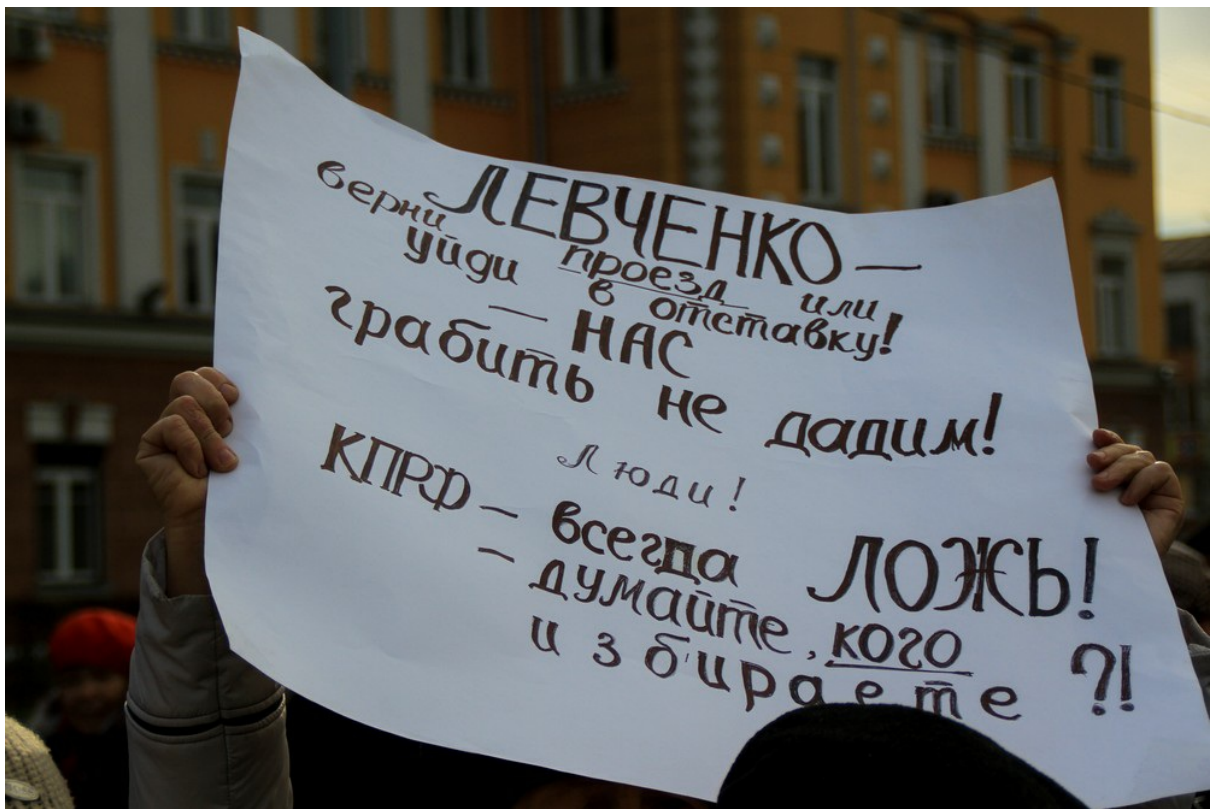 ЛЕВЧЕНКО —
верни проезд или
уйди в отставку!
— НАС
грабить не дадим!
Люди!
КПРФ — всегда ЛОЖЬ!
— думайте, кого
избираете ?!